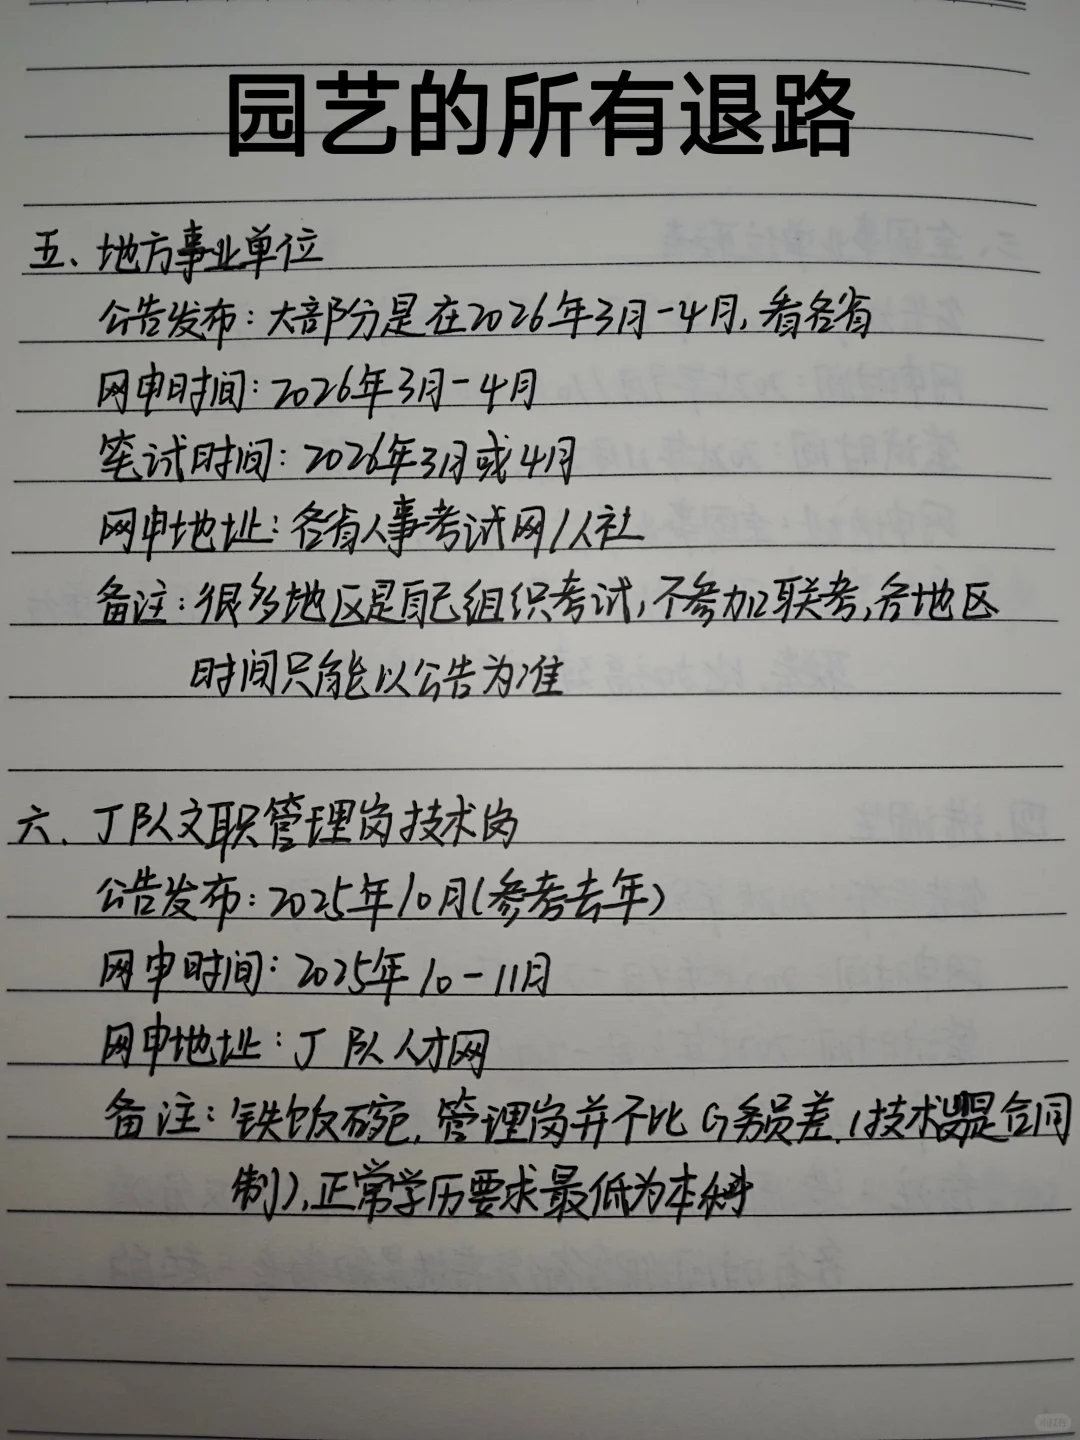 园艺的所有退路
五、地方事业单位
公告发布：大部分是在2026年3月-4月，看各省
网申时间：2026年3月-4月
笔试时间：2026年3月或4月
网申地址：各省人事考试网/人社
备注：很多地区是自己组织考试，不参加联考，各地区
时间只能以公告为准
六、J队文职管理岗技术岗
公告发布：2025年10月（参考去年）
网申时间：2025年10-11月
网申地址：J队人才网
备注：铁饭碗，管理岗并不比G务员差，（技术岗是合同
制），正常学历要求最低为本科
小红书